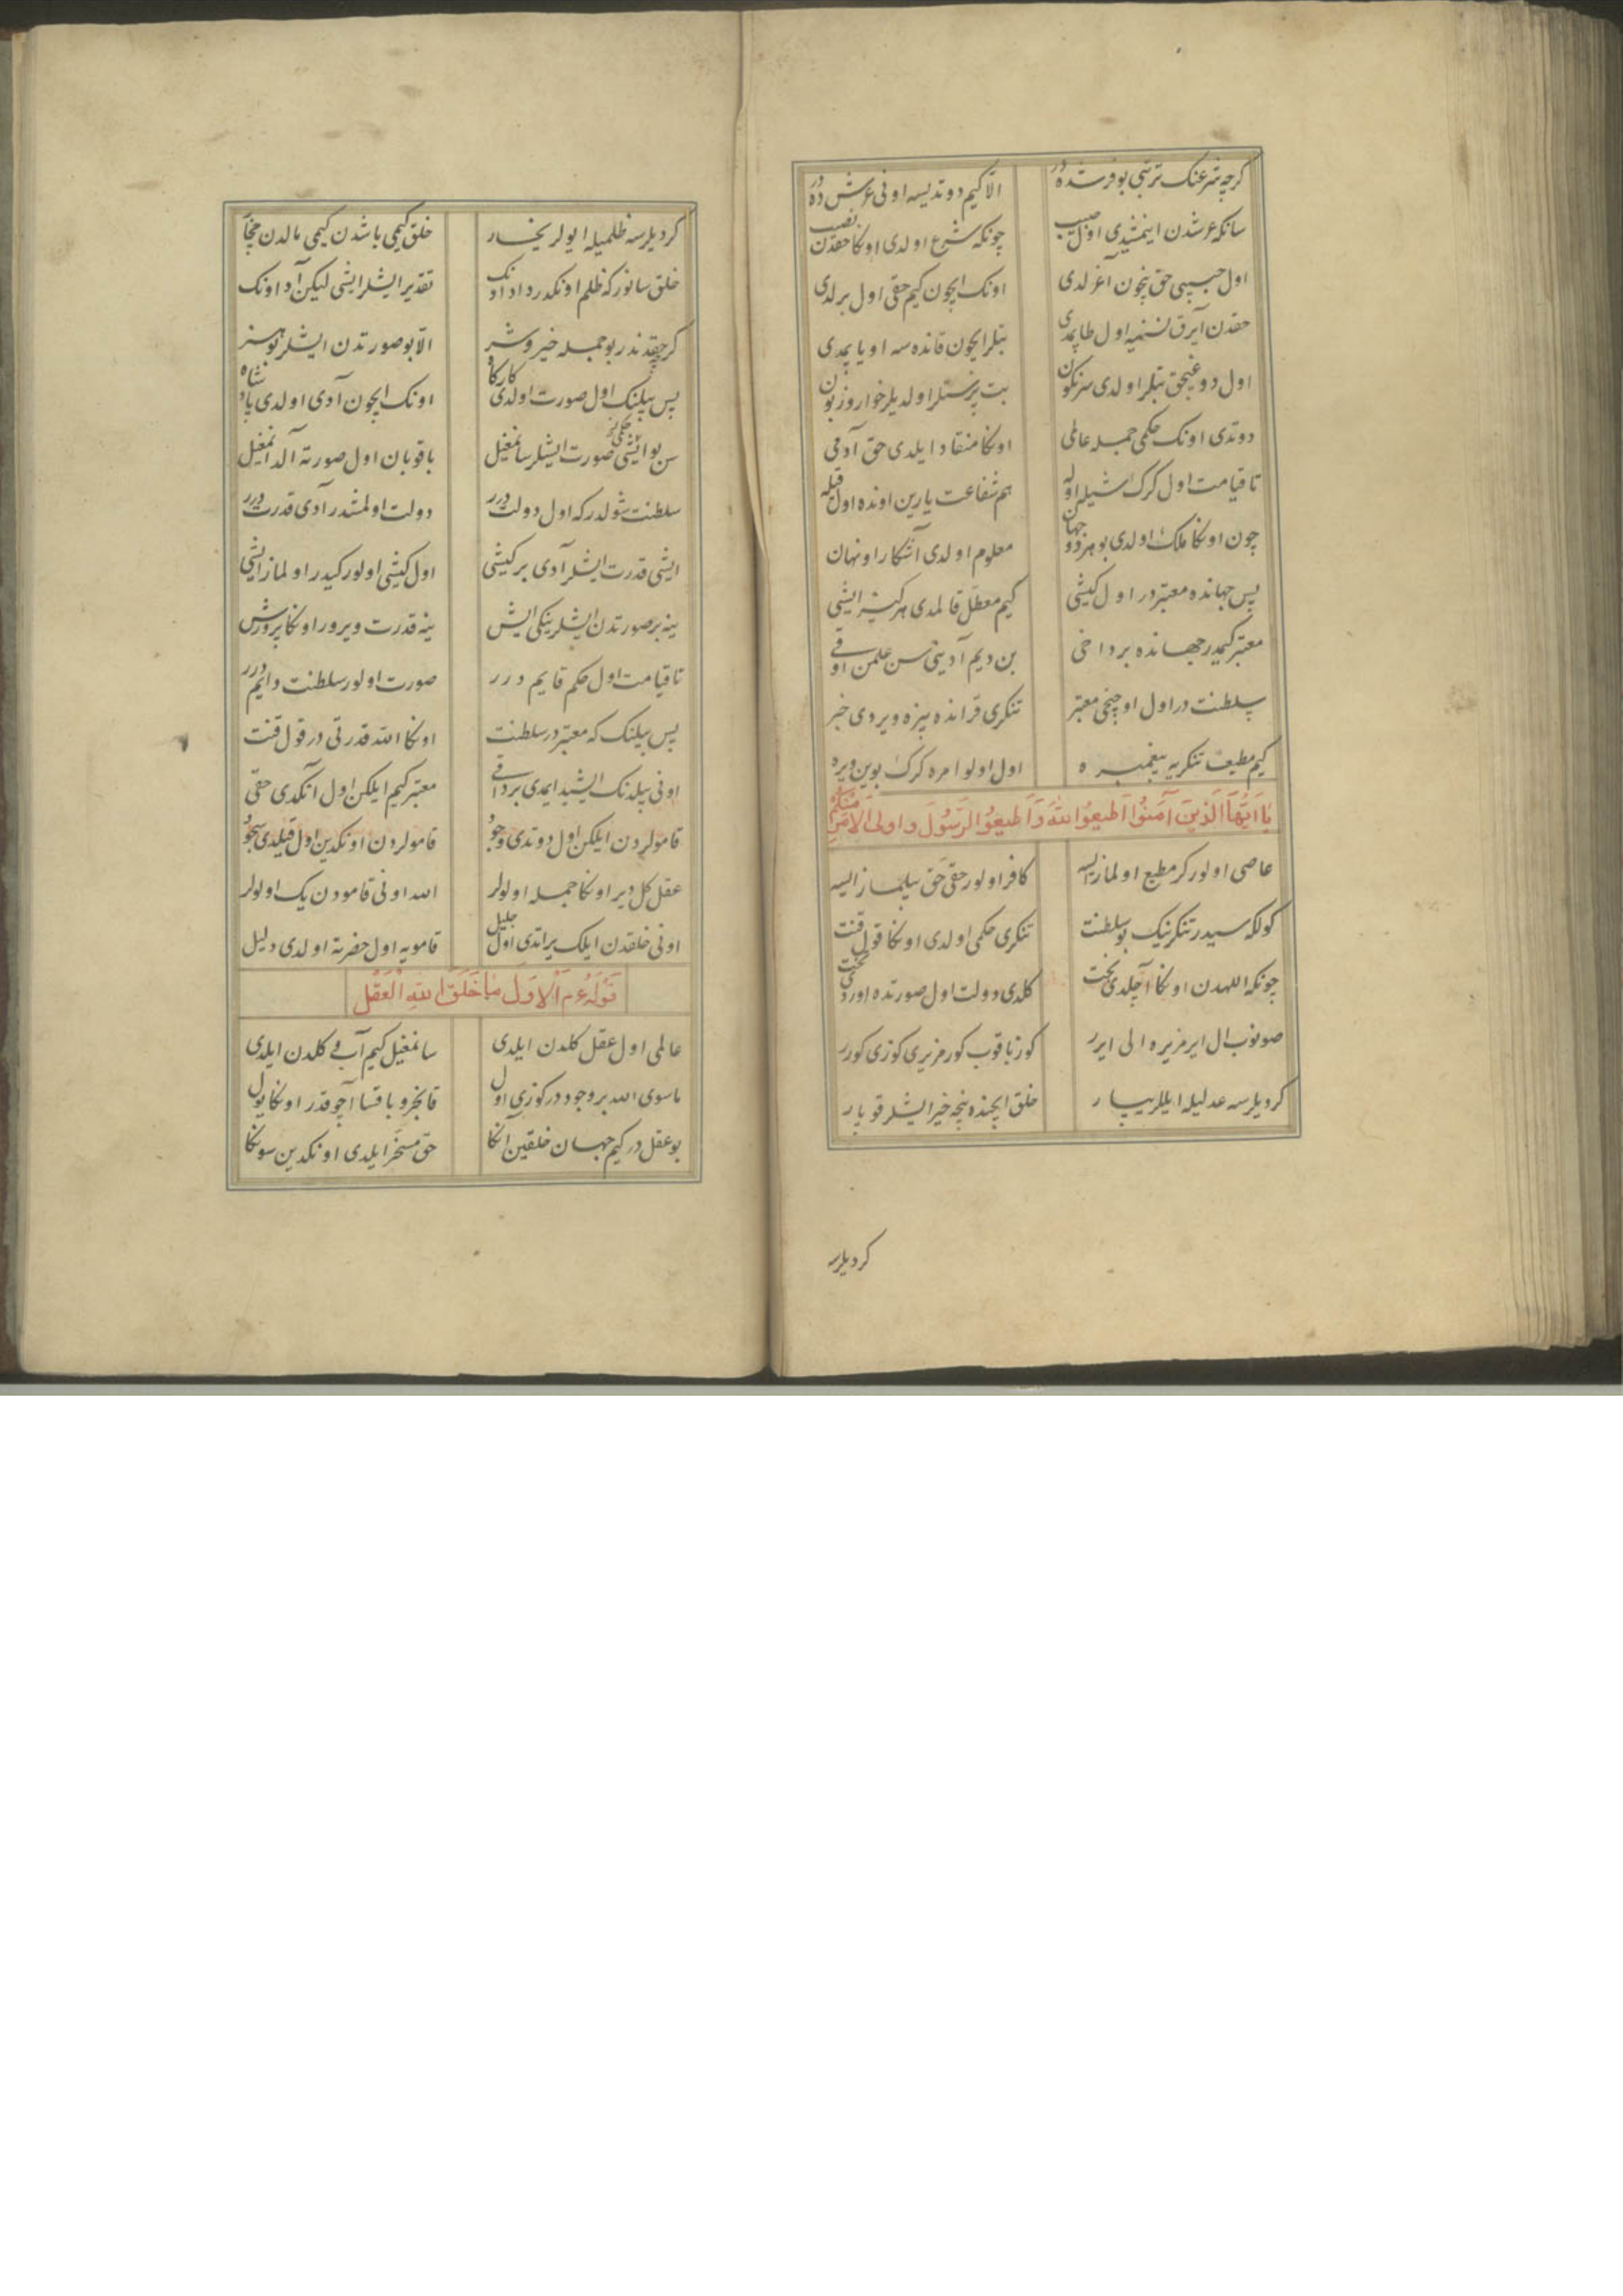 كرچه شرعنك ترتبی بو فرشده در الّا كیم دوتدیسه اونی عرش ده در
سانكه عرشدن اینمشیدی اول حبیب چونكه شرع اولدی اوكا حقدن نصیب
اول حبیبی حق نچون آغرلدی اونك ایچون كیم حقی اول برلدی
حقدن آیرق نسنیه اول طاپمدی بتلر ایچون قانده سه اویاپمدی
اول دوغیجق بتلر اولدی سرنكون بت پرستلر اولدیلر خوار و زبون
دوتدی اونك حكمی جمله عالمی اونكا منقاد ایلدی حق آدمی
تا قیامت اول كرك اشیله اوله هم شفاعت یارین اونده اول قیله
چون اونكا ملك اولدی بو هر دو جهان معلوم اولدی آشكار او نهان
پس جهانده معتبر در اول كیشی كیم معطّل قالمدی هركیز ایشی
معتبر كیمدر جهانده بر داخی بن دیم آدینی سن علمن اوقی
سلطنت در اول اوچنجی معتبر تنكری قرانده بیزه ویردی خبر
كیم مطیع تنكریه پیغمبره اول اولو امره كرك بوین ویره
یا ایّها الّذین آمنوا اطیعوا الله و اطیعوا الرّسول و اولی الامر منكم
عاصی اولور كر مطیع اولمازایسه كافر اولور حقی حق بیلمازایسه
كولكه سیدر تنكرینك بو سلطنت تنكری حكمی اولدی اونكا قول قنت
چونكه اللهدن اونكا آچلدی بخت كلدی دولت اول صورتده اوردی تخت
صونوب ال ایرمزیره الی ایرر كوز باقوب كورمزیری كوزی كورر
كردیلرسه عدلیله ایللر یپار خلق ایچنده نیچه خیر ایشلر قوپار
كردیلرسه
كردیلرسه ظلمیله ایولر یخار خلق كیمی باشدن كیمی مالدن چخار
خلق سانور كه ظلم اونكدر داد اونك تقدیر ایشلر ایشی لیكن آد اونك
كرچه حقدندر بو جمله خیر و شر الّا بو صورتدن ایشلر بو هنر
پس بیلنك اول صورت اولدی كاركاه اونك ایچون آدی اولدی پادشاه
سن بو ایشی حكمی صورت ایشلر سانمغیل باقوبان اول صورته آلدانمغیل
سلطنت شولدر كه اول دولت درر دولت اولمشدر آدی قدرت درر
ایشی قدرت ایشلر آدی بر كیشی اول كیشی اولور كیدر اولماز ایشی
ینه بر صورتدن ایشلر ینكی ایش ینه قدرت ویرور اونكا پرورش
تا قیامت اول حكم قایم درر صورت اولور سلطنت دایم درر
پس بیلنك كه معتبر در سلطنت اونكا الله قدرتی در قول قنت
اونی بیلدنك ایشید ایمدی برداقی معتبر كیم ایلكن اول آنكدی حقی
قامولردن ایلكن اول دوتدی وجود قامولردن اونكدین اول قیلدی سجود
عقل كل دیر اونكا جمله اولولر الله اونی قامودن یك اولولر
اونی خلقدن ایلك یراتدی اول جلیل قامویه اول حضرته اولدی دلیل
قوله ع م الاوّل ما خلق الله العقل
عالمی اول عقل كلدن ایلدی سانمغیل كیم آب و كلدن ایلدی
ماسوی الله بر وجود در كوزی اول قانجرو باقسا آچوقدر اونكا یول
بو عقل در كیم جهان خلقین انكا حق مسخّر ایلدی اونكدین سونكا